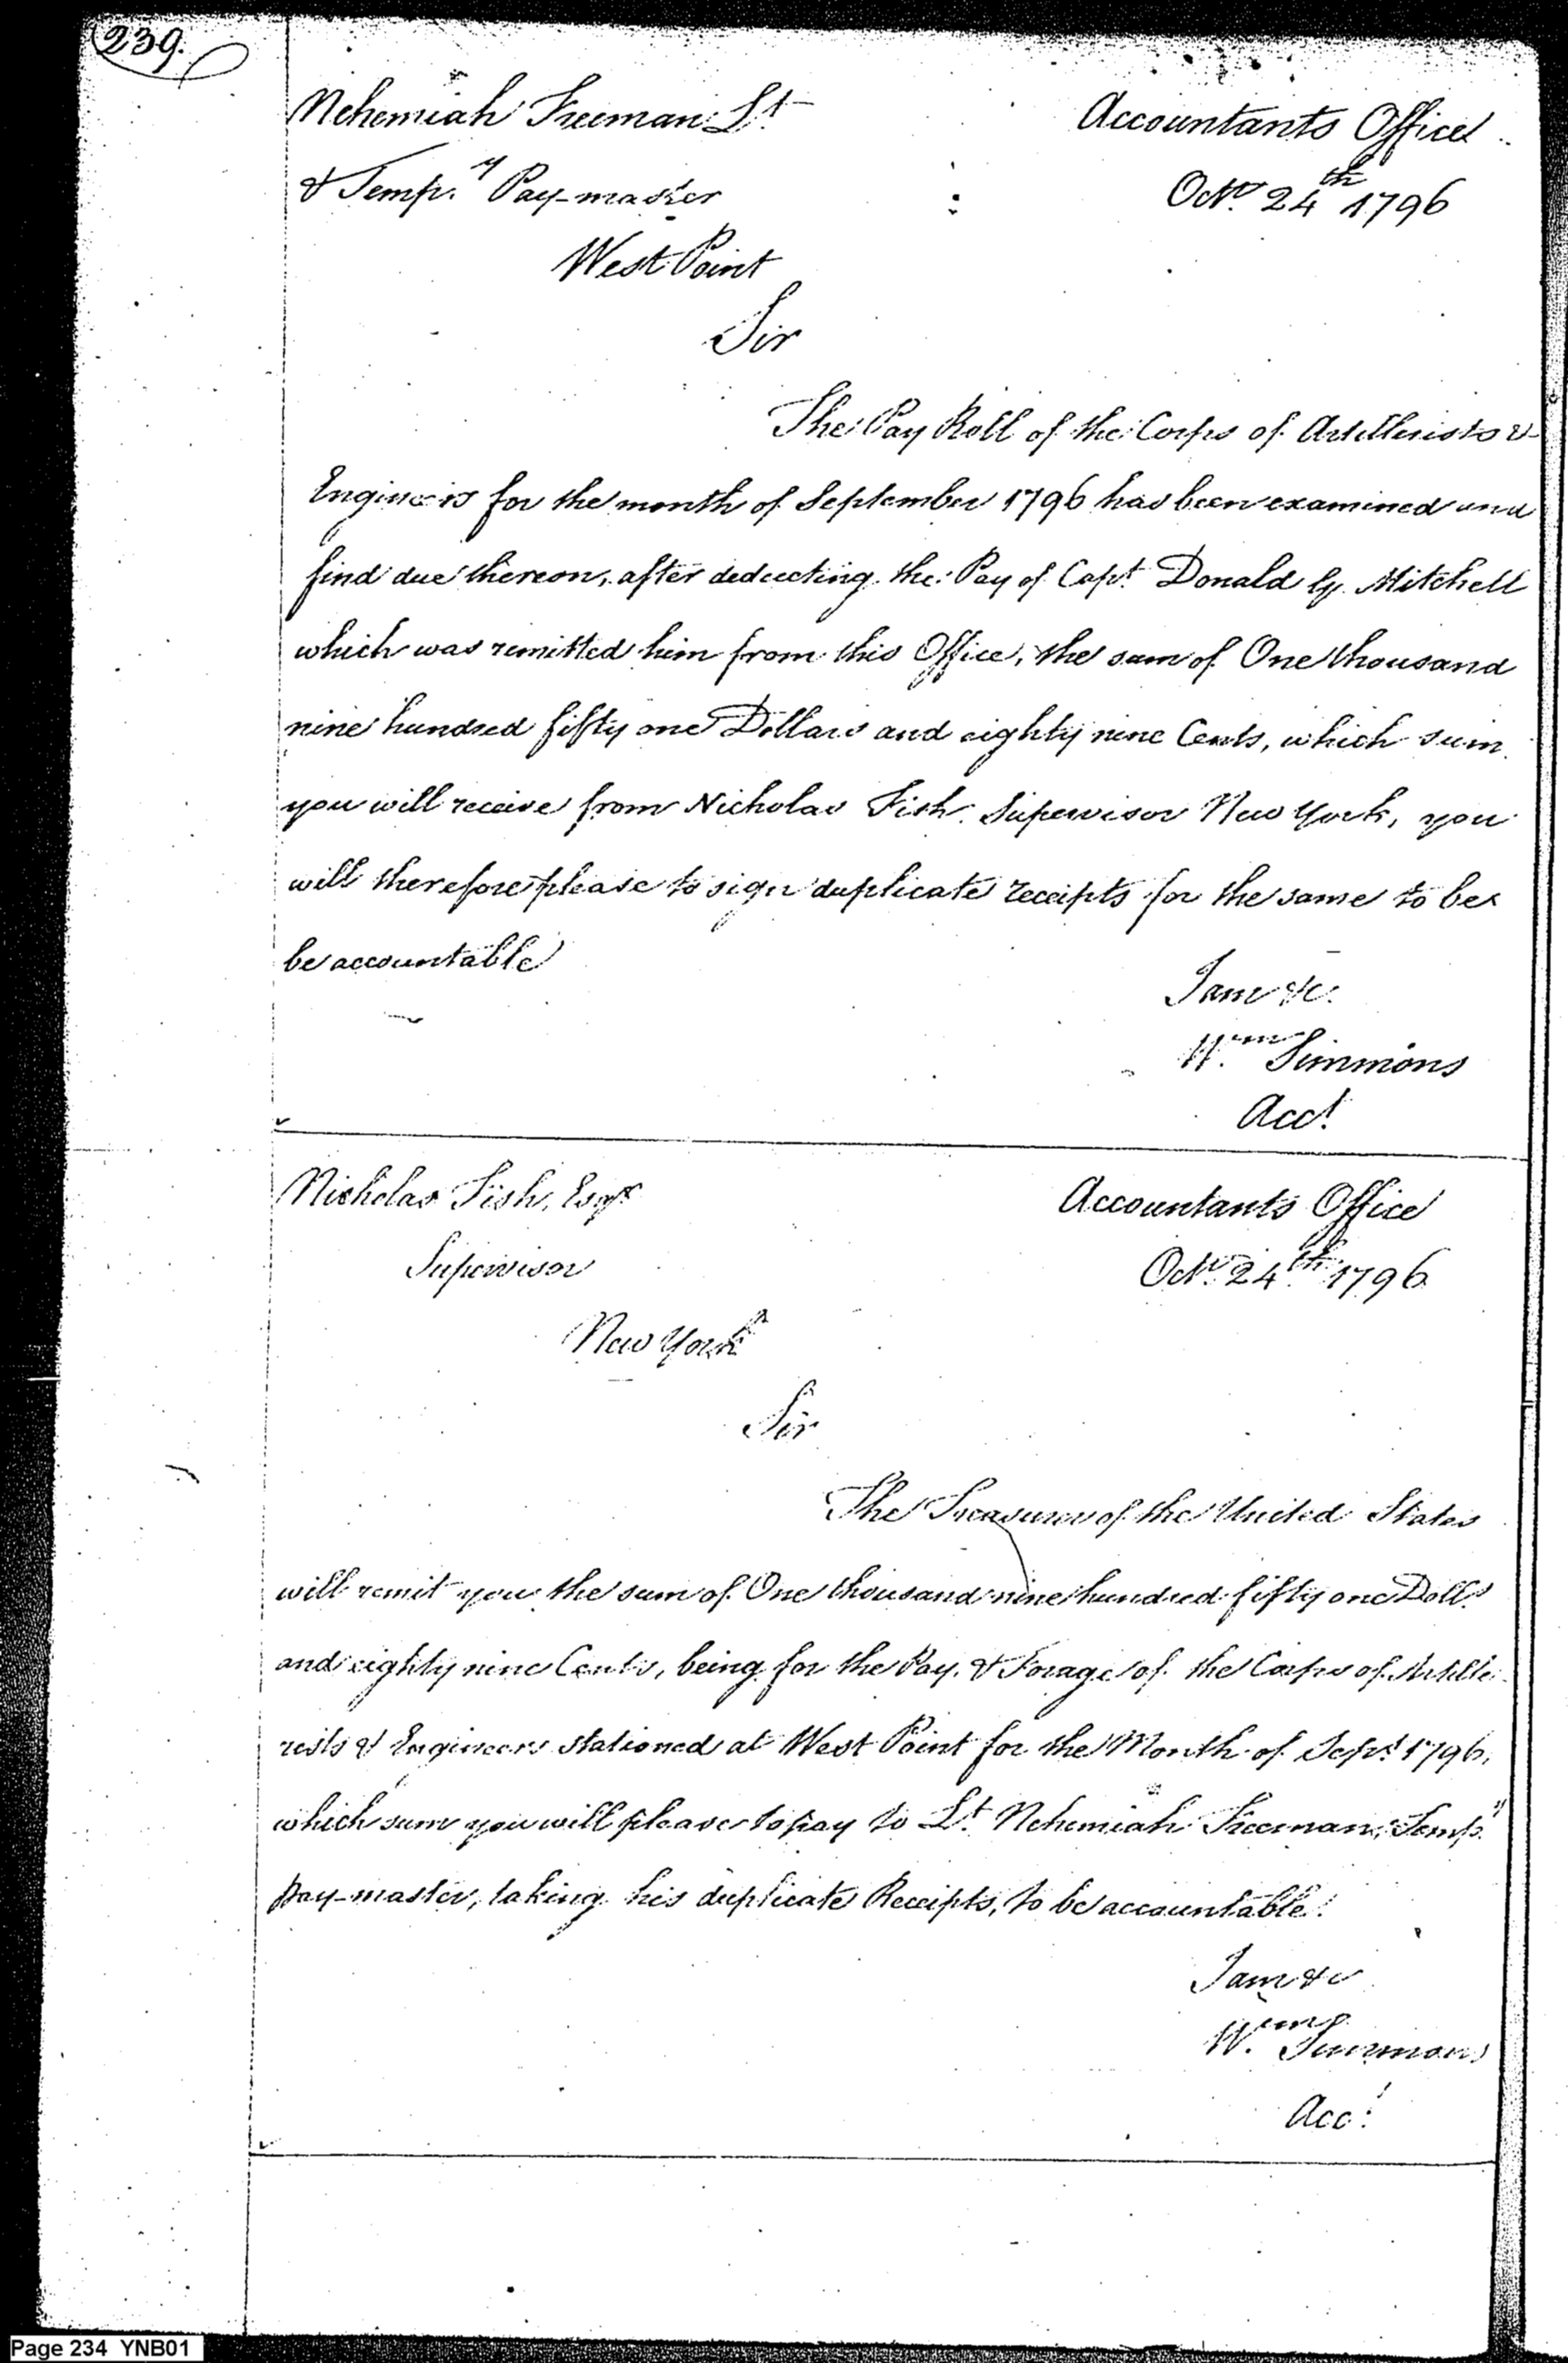 239.
Nehemiah Freeman Lt
& Temp.y Pay-master
West Point
Accountants Office
Octr. 24th 1796
Sir
The Pay Roll of the Corps of Artillerists &
Engineers for the month of September 1796 has been examined and
find due thereon, after deducting the Pay of Capt. Donald G. Mitchell
which was remitted him from this Office, the sum of One thousand
nine hundred fifty one Dollars and eighty nine Cents, which sum
you will receive from Nicholas Fish Supervisor New York, you
will therefore please to sign duplicate receipts for the same to be
be accountable
I am &c.
Wm. Simmons
Acct.
Nicholas Fish, Esqr.
Supervisor
New York
Accountants Office
Octr. 24th 1796
Sir
The Treasurer of the United States
will remit you the sum of One thousand nine hundred fifty one Dolls.
and eighty nine Cents, being for the Pay & Forage of the Corps of Artille-
rists & Engineers stationed at West Point for the Month of Sept. 1796,
which sum you will please to pay to Lt. Nehemiah Freeman, Temp.y
pay-master, taking his duplicate Receipts, to be accountable.
I am &c
Wm. Simmons
Acct.
Page 234 YNB01